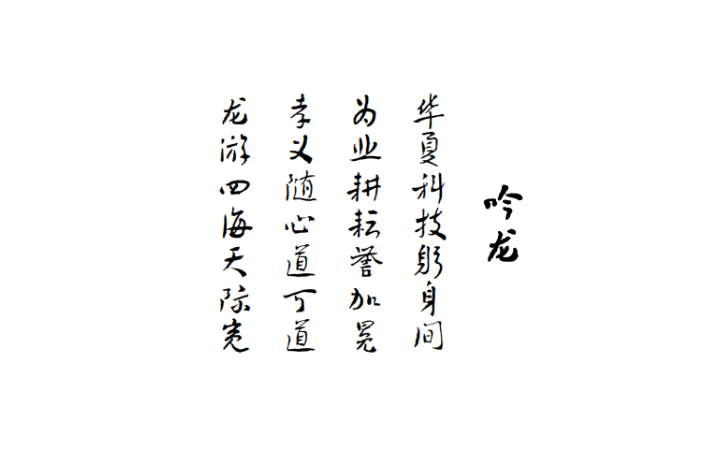 吟龙
华夏科技躬身间
为业耕耘誉加冕
孝义随心道可道
龙游四海天际宽